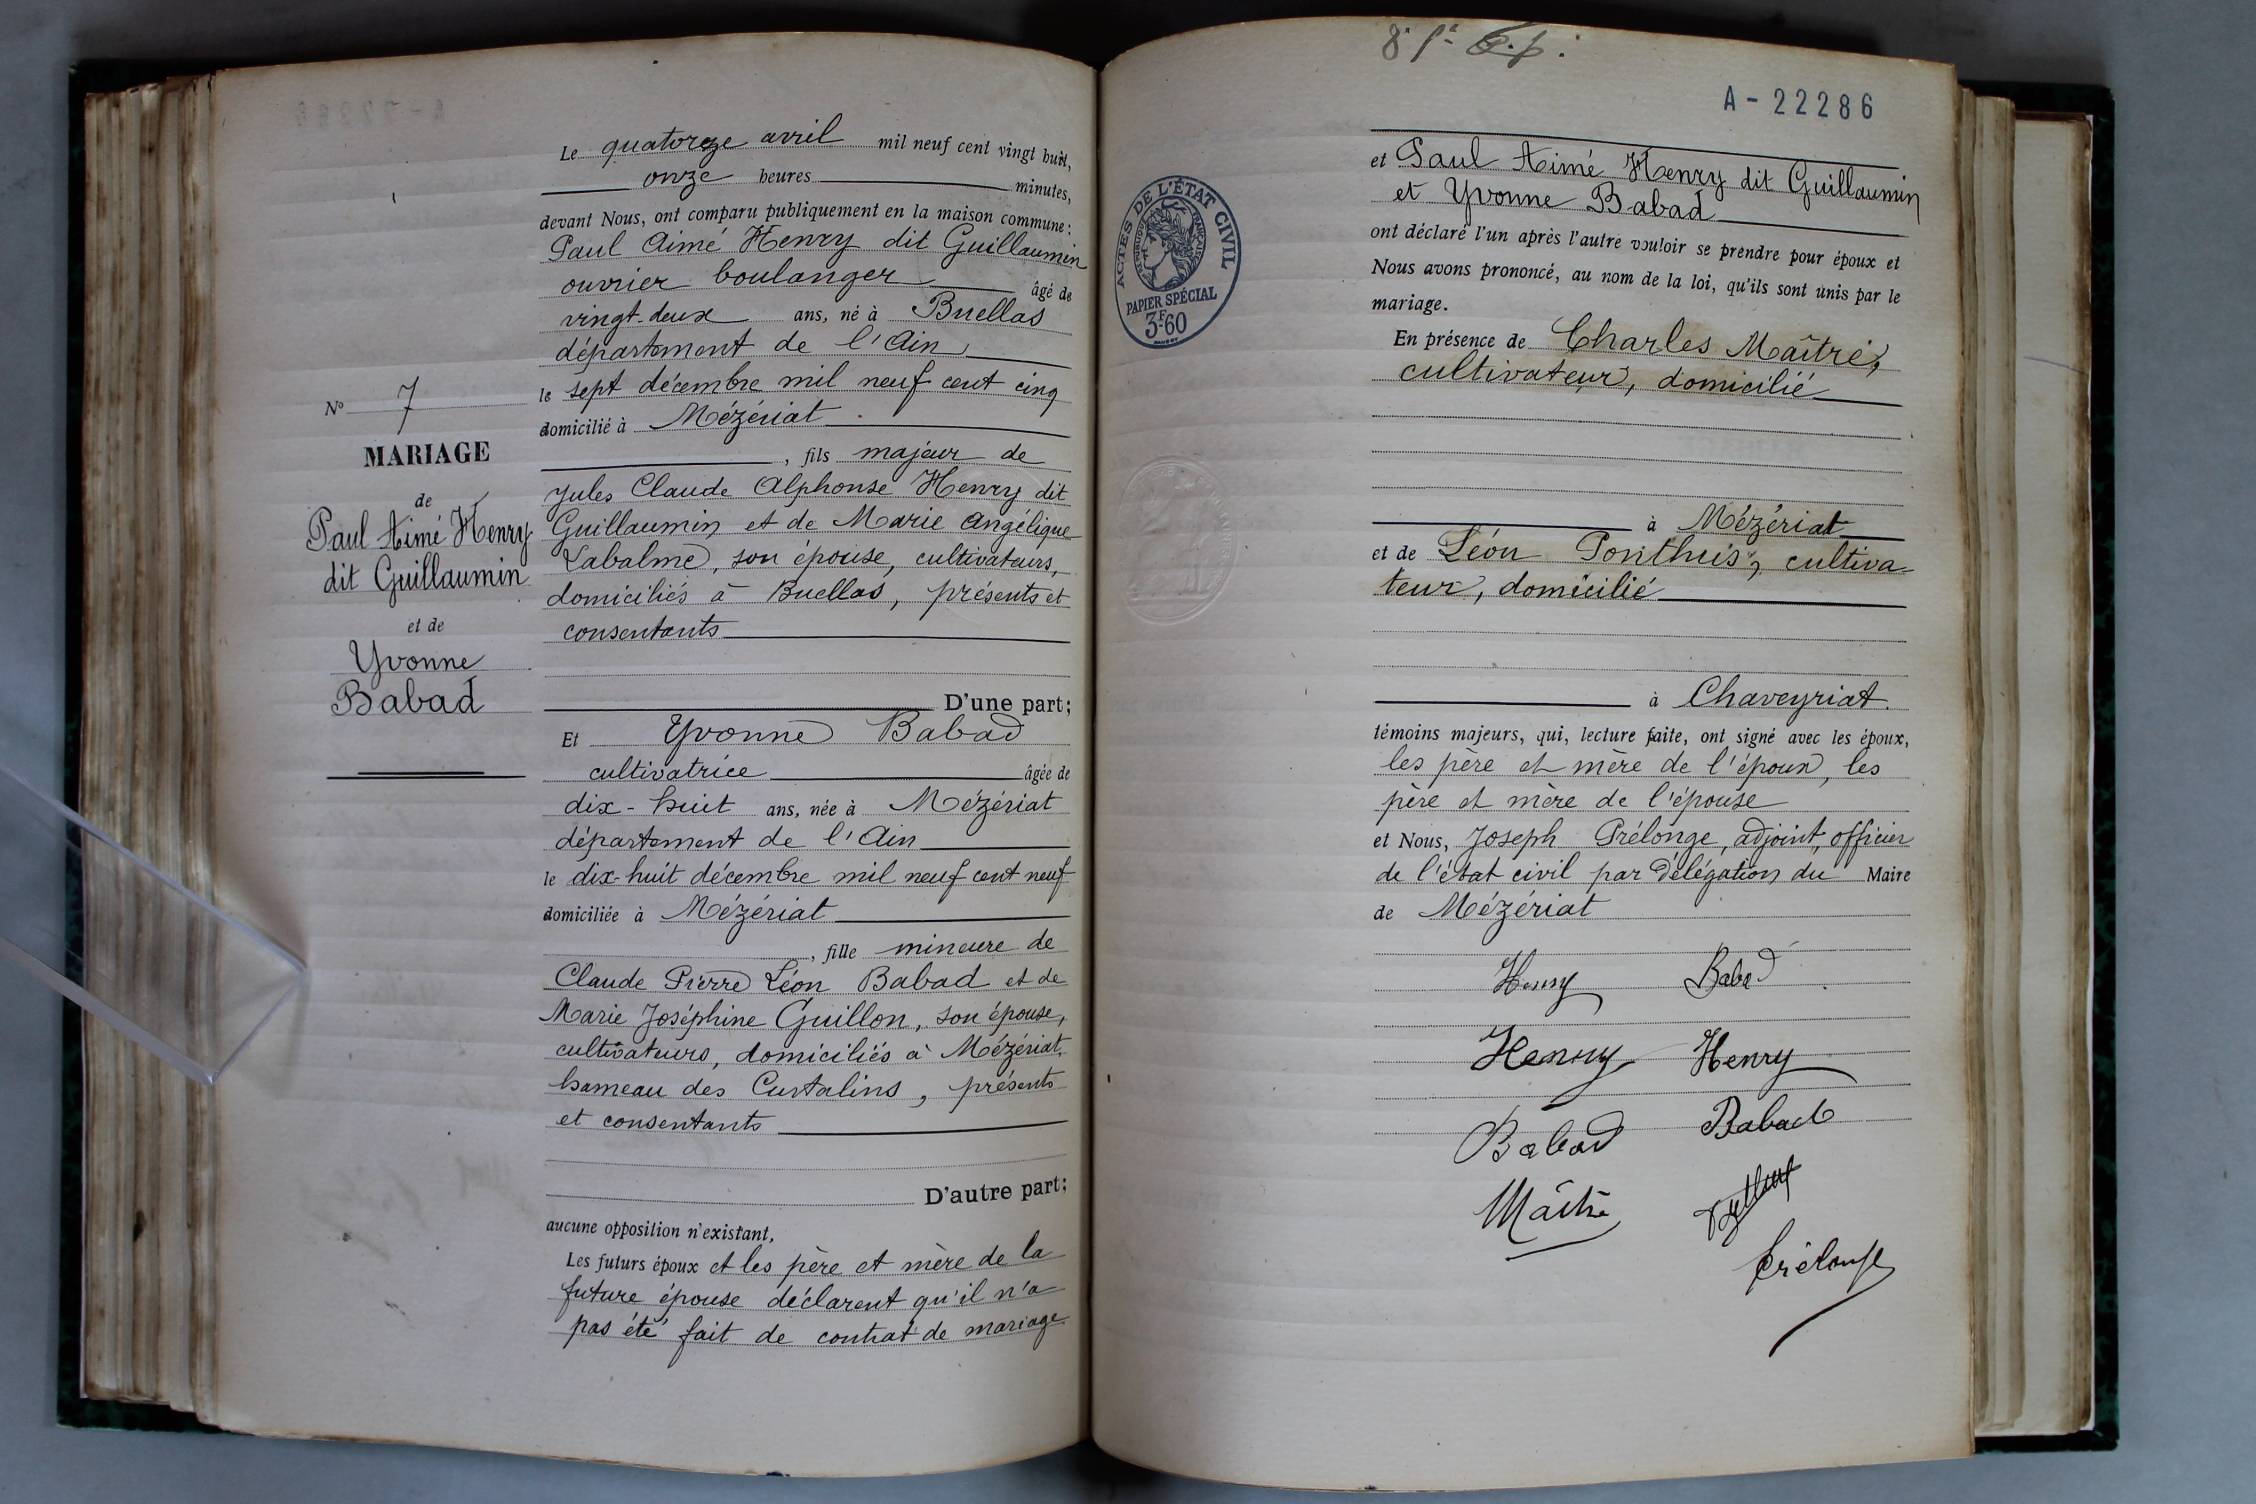 N° 7
MARIAGE
de
Paul Aimé Henry
dit Guillaumin
et de
Yvonne
Babad
Le quatorze avril mil neuf cent vingt huit,
onze heures minutes,
devant Nous, ont comparu publiquement en la maison commune :
Paul Aimé Henry dit Guillaumin
ouvrier boulanger âgé de
vingt-deux ans, né à Buellas
département de l'Ain
le sept décembre mil neuf cent cinq
domicilié à Mézériat
, fils majeur de
Jules Claude Alphonse Henry dit
Guillaumin et de Marie Angélique
Labalme, son épouse, cultivateurs,
domiciliés à Buellas, présents et
consentants
D'une part ;
Et Yvonne Babad
cultivatrice âgée de
dix-huit ans, née à Mézériat
département de l'Ain
le dix-huit décembre mil neuf cent neuf
domiciliée à Mézériat
, fille mineure de
Claude Pierre Léon Babad et de
Marie Joséphine Guillon, son épouse,
cultivateurs, domiciliés à Mézériat,
hameau des Curtalins, présents
et consentants
D'autre part ;
aucune opposition n'existant,
Les futurs époux et les père et mère de la
future épouse déclarent qu'il n'a
pas été fait de contrat de mariage
A-22286
ACTES DE L'ÉTAT CIVIL
RÉPUBLIQUE FRANÇAISE
PAPIER SPÉCIAL
3F60
et Paul Aimé Henry dit Guillaumin
et Yvonne Babad
ont déclaré l'un après l'autre vouloir se prendre pour époux et
Nous avons prononcé, au nom de la loi, qu'ils sont unis par le
mariage.
En présence de Charles Maîtré,
cultivateur, domicilié
à Mézériat
et de Léon Ponthus, cultiva
teur, domicilié
à Chaveyriat.
témoins majeurs, qui, lecture faite, ont signé avec les époux,
les père et mère de l'époux, les
père et mère de l'épouse
et Nous, Joseph Prélonge, adjoint, officier
de l'état civil par délégation du Maire
de Mézériat
Henry Babad
Henry Henry
Babad Babad
Maître
Prélonge